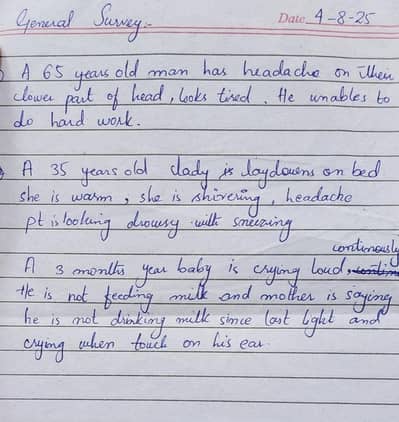 General Survey:-
Date 4-8-25
A 65 years old man has headache on their
lower part of head, looks tired. He unables to
do hard work.
A 35 years old lady is laydowns on bed
she is warm, she is shivering, headache
pt is looking drowsy with sneezing
continously
A 3 months year baby is crying loud,
He is not feeding milk and mother is saying
he is not drinking milk since last 6ght and
crying when touch on his ear.